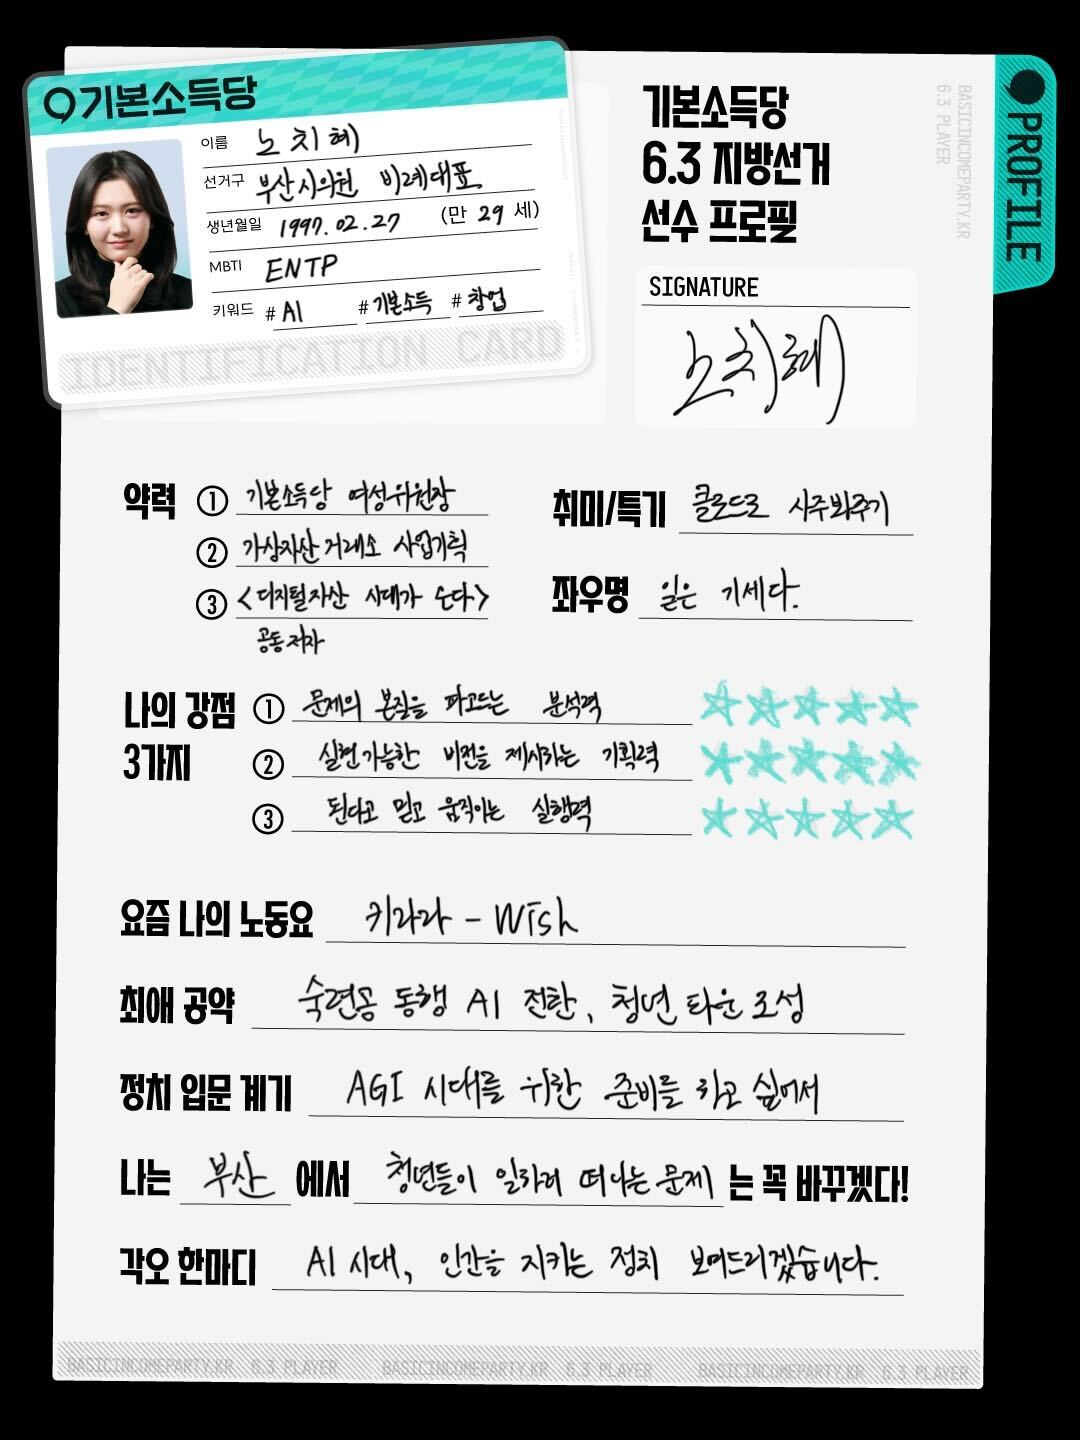 기본소득당
이름 노치혜
선거구 부산시의원 비례대표
생년월일 1997.02.27 (만 29 세)
MBTI ENTP
키워드 # AI # 기본소득 # 창업
IDENTIFICATION CARD
기본소득당
6.3 지방선거
선수 프로필
BASICINCOMEPARTY.KR
6.3 PLAYER
PROFILE
SIGNATURE
노치혜
약력 ① 기본소득당 여성위원장
② 가상자산거래소 사업기획
③ <디지털자산 시대가 온다>
공동저자
취미/특기 클로드로 사주봐주기
좌우명 일은 기세다.
나의 강점
3가지
① 문제의 본질을 파고드는 분석력
② 실현가능한 비전을 제시하는 기획력
③ 된다고 믿고 움직이는 실행력
요즘 나의 노동요 키라라 - Wish
최애 공약 숙련공 동행 AI 전환, 청년 타운 조성
정치 입문 계기 AGI 시대를 위한 준비를 하고 싶어서
나는 부산 에서 청년들이 일하러 떠나는 문제 는 꼭 바꾸겠다!
각오 한마디 AI 시대, 인간을 지키는 정치 보여드리겠습니다.
BASICINCOMEPARTY.KR 6.3 PLAYER BASICINCOMEPARTY.KR 6.3 PLAYER BASICINCOMEPARTY.KR 6.3 PLAYER